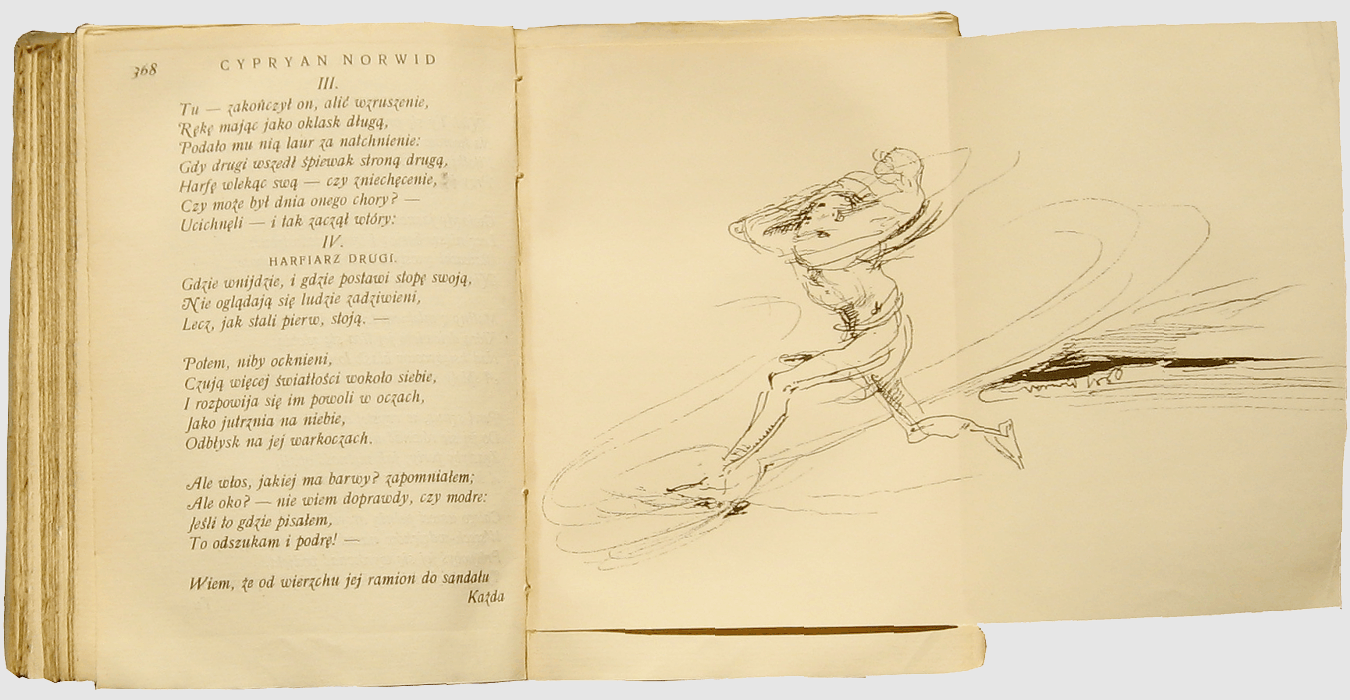 368
CYPRYAN NORWID
III.
Tu — zakończył on, alić wzruszenie,
Rękę mając jako oklask długą,
Podało mu nią laur za natchnienie:
Gdy drugi wszedł śpiewak stroną drugą,
Harfę wlekąc swą — czy zniechęcenie,
Czy może był dnia onego chory? —
Ucichnęli — i tak zaczął wtóry:
IV.
HARFIARZ DRUGI.
Gdzie wnijdzie, i gdzie postawi stopę swoją,
Nie oglądają się ludzie zadziwieni,
Lecz, jak stali pierw, stoją. —
Potem, niby ocknieni,
Czują więcej światłości wokoło siebie,
I rozpowija się im powoli w oczach,
Jako jutrznia na niebie,
Odbłysk na jej warkoczach.
Ale włos, jakiej ma barwy? zapomniałem;
Ale oko? — nie wiem doprawdy, czy modre:
Jeśli to gdzie pisałem,
To odszukam i podrę! —
Wiem, że od wierzchu jej ramion do sandału
Każda